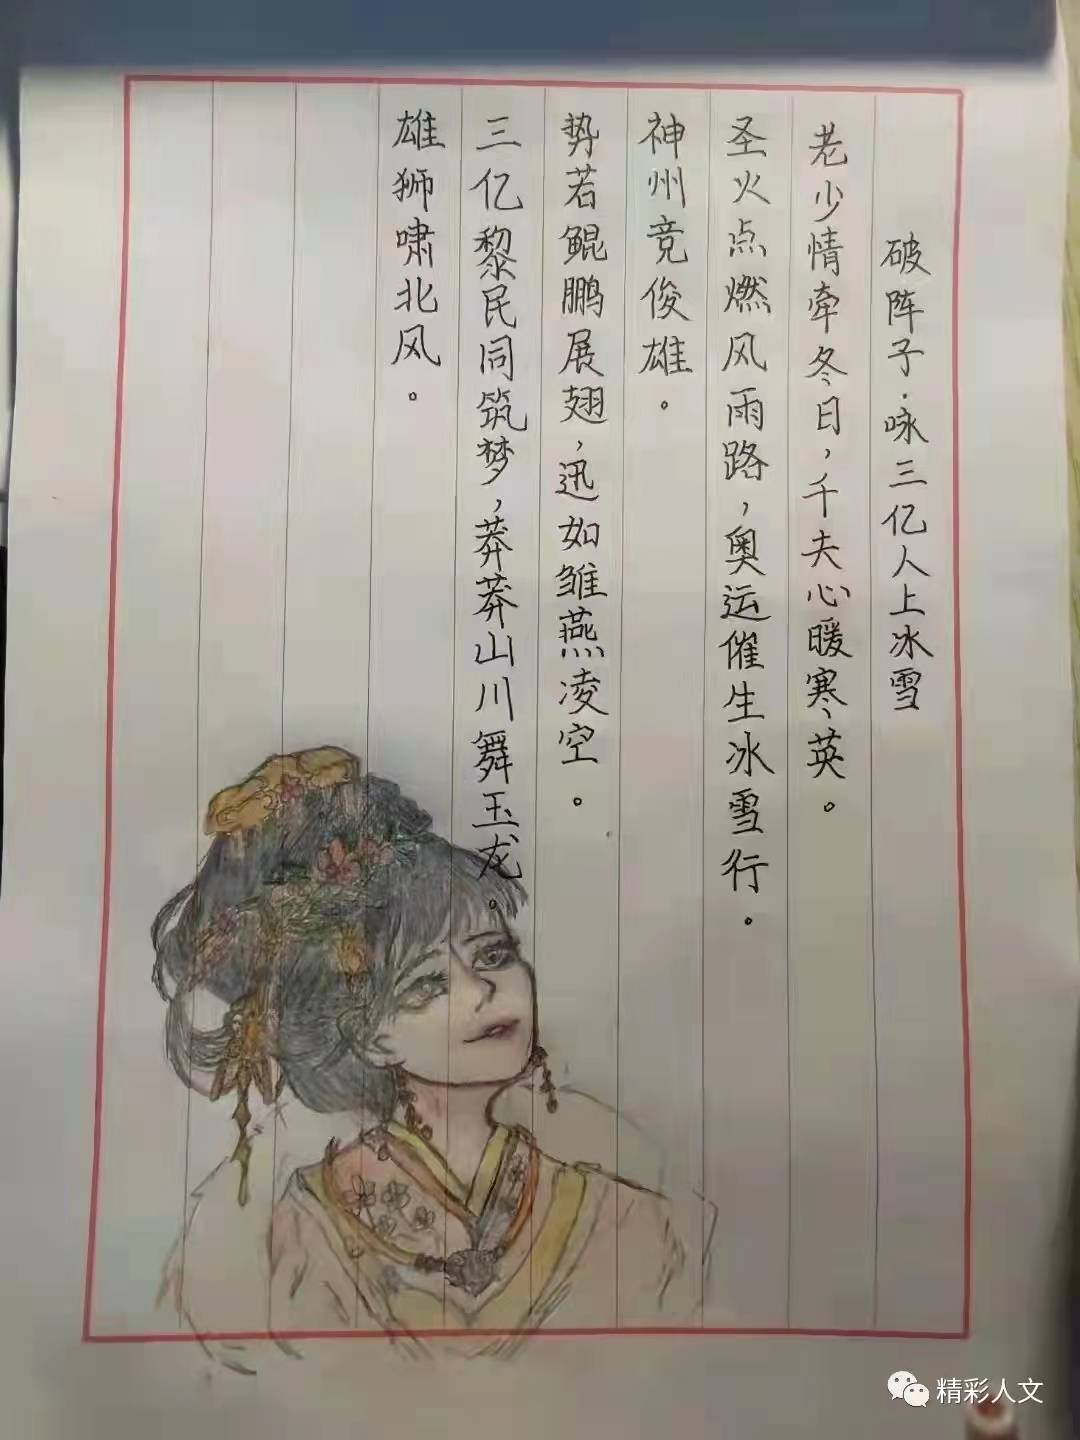 破阵子·咏三亿人上冰雪
老少情牵冬日，千夫心暖寒英。
圣火点燃风雨路，奥运催生冰雪行。
神州竞俊雄。
势若鲲鹏展翅，迅如雏燕凌空。
三亿黎民同筑梦，莽莽山川舞玉龙。
雄狮啸北风。
精彩人文